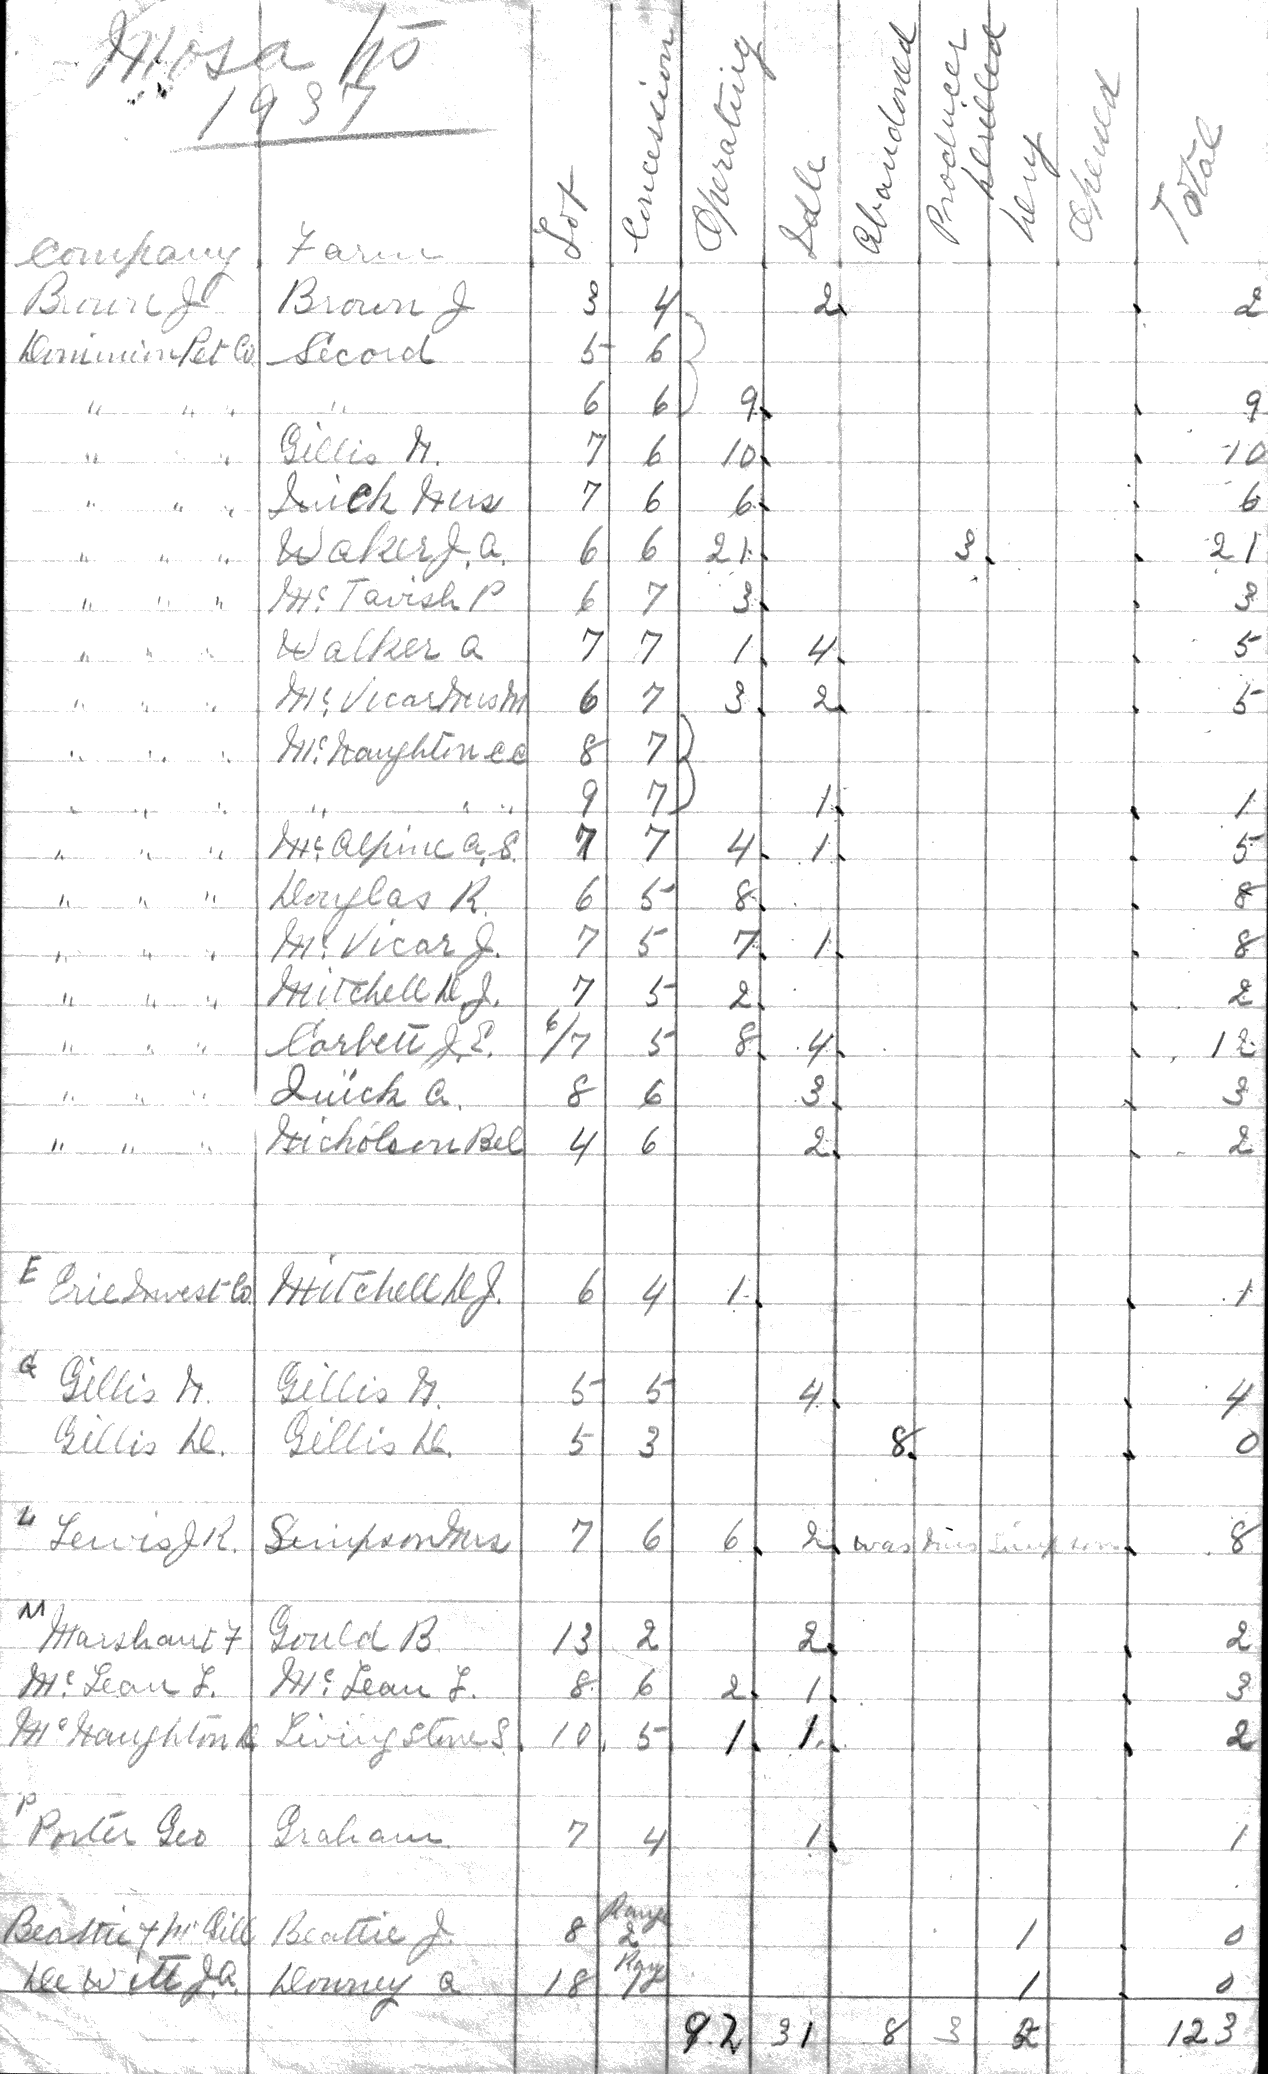 Mosa
1937
Company Farm Lot Concession Operating Idle Abandoned Producer Drilled Dry Opened Total
Brown J Brown J 3 4 2 2
Dominion Pet Co. Secord 5 6
" " " " 6 6 9 9
" " " Gillis N. 7 6 10 10
" " " Quick Mrs 7 6 6 6
" " " Walker J. A. 6 6 21 3 21
" " " Mc Tavish P 6 7 3 3
" " " Walker A 7 7 1 4 5
" " " Mc Vicar Mrs M 6 7 3 2 5
" " " Mc Naughton C C 8 7
" " " " " " 9 7 1 1
" " " Mc Alpine A. S. 7 7 4 1 5
" " " Douglas R. 6 5 8 8
" " " Mc Vicar J. 7 5 7 1 8
" " " Mitchell D. J. 7 5 2 2
" " " Corbett J. E. 6/7 5 8 4 12
" " " Quick A. 8 6 3 3
" " " Nicholson Bel 4 6 2 2
E
Erie Invest Co. Mitchell D J. 6 4 1 1
G
Gillis N. Gillis N. 5 5 4 4
Gillis D. Gillis D. 5 3 8 0
L
Lewis J R. Simpson Mrs 7 6 6 2 was Mrs Simpson 8
M
Marshant F Gould B 13 2 2 2
Mc Lean L. Mc Lean L. 8 6 2 1 3
Mc Naughton D Livingstone S. 10 5 1 1 2
P
Porter Geo Graham 7 4 1 1
Beattie & Mc Gill Beattie J. 8 Range 2 1 0
De Witt J. A. Downey A 18 1 0
92 31 8 3 2 123